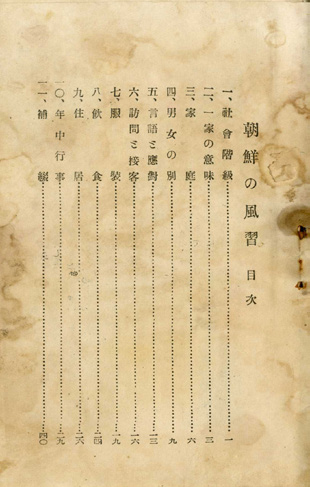 朝鮮の風習 目次
一、社會階級……一
二、一家の意味……三
三、家庭……六
四、男女の別……九
五、言語と應對……一三
六、訪問と接客……一六
七、服裝……一九
八、飲食……二四
九、住居……二六
一〇、年中行事……二九
一一、補綴……四〇